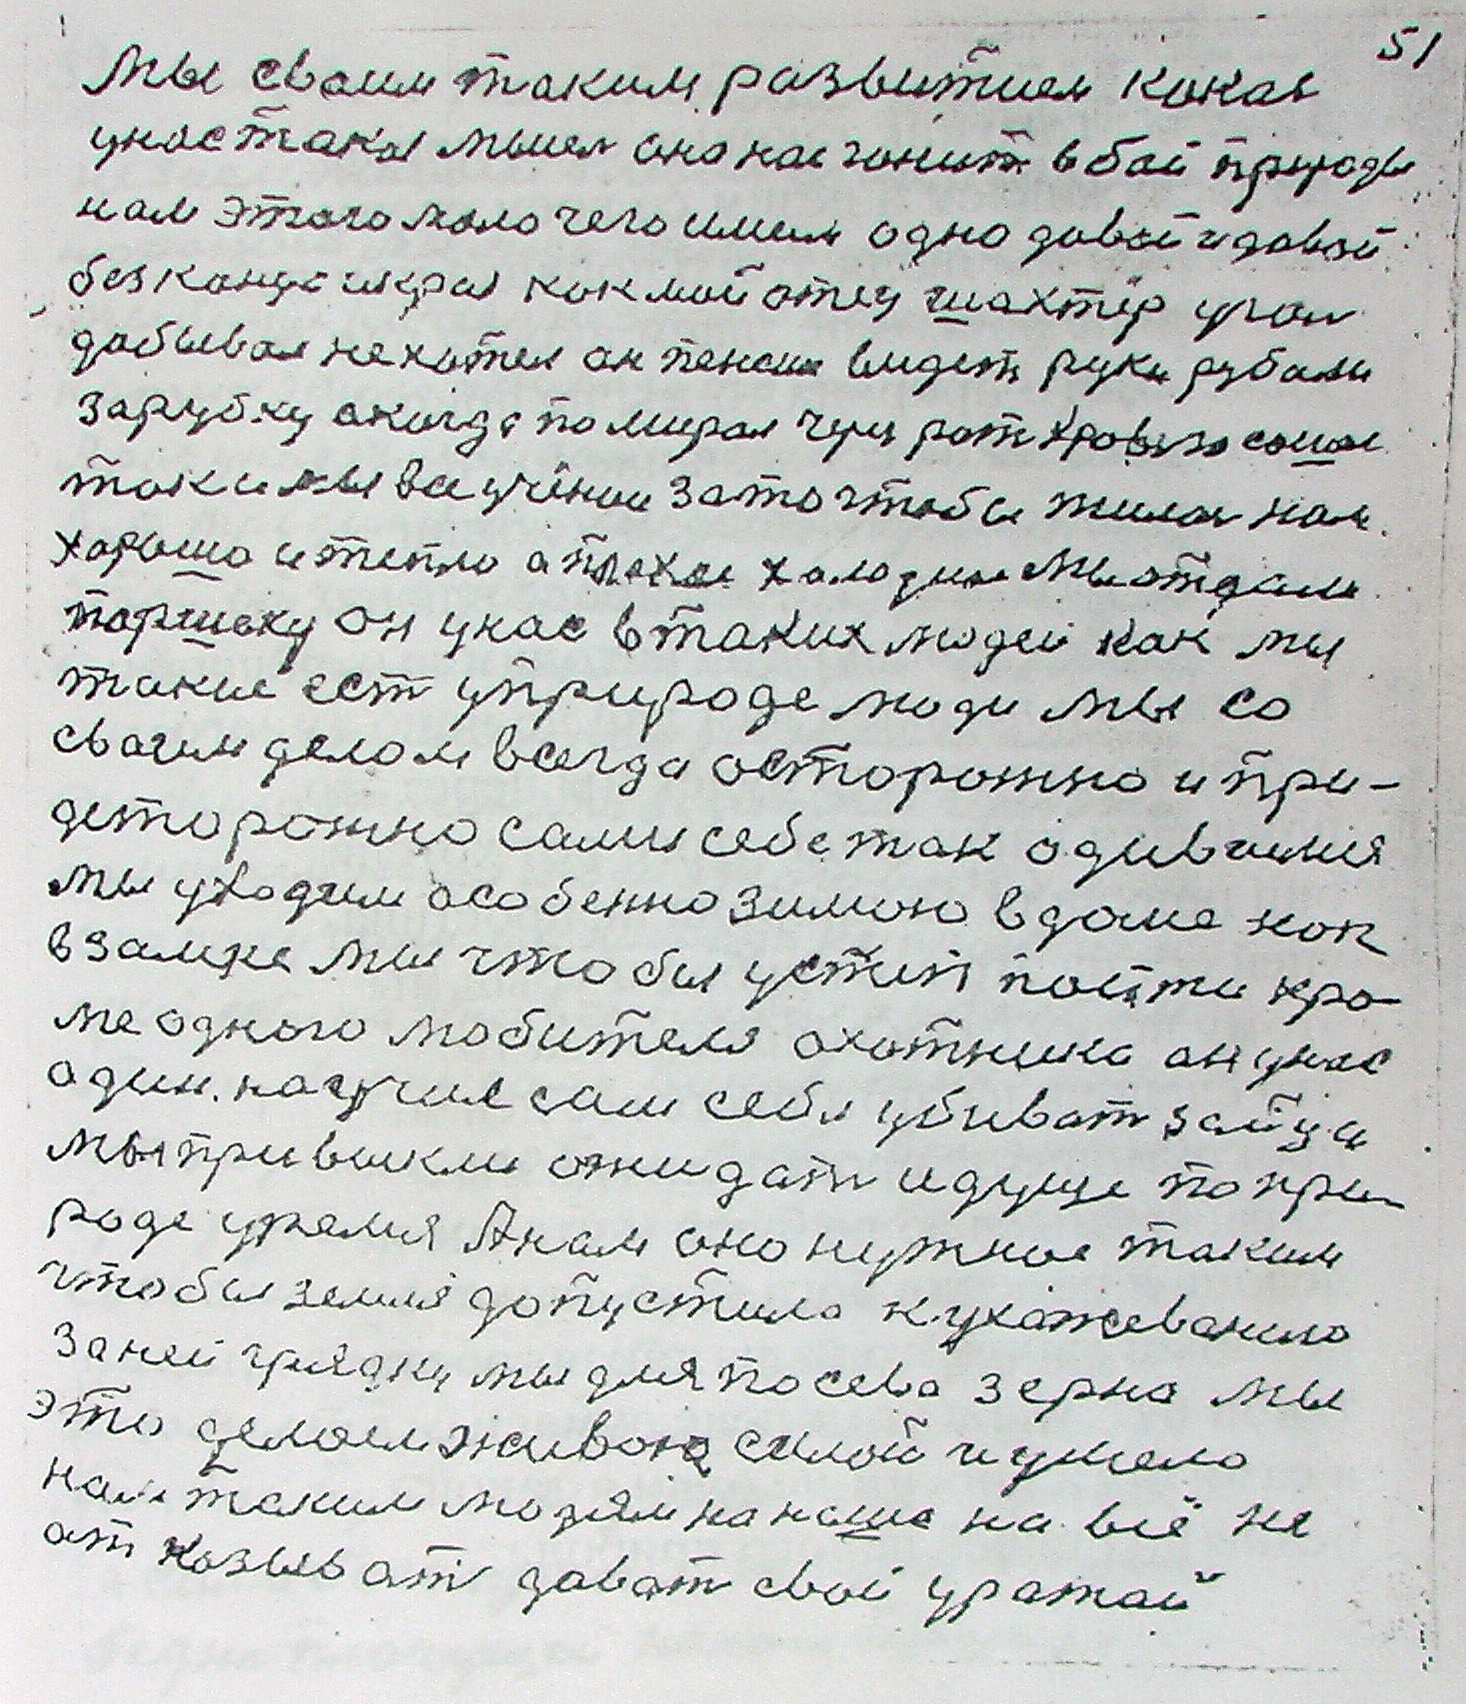 51
мы сваим таким развитием какая
унас такая мысел она нас гонит в бой природы
нам этого мало чего имеим одно давай идавай
безконца икрая как мой отец шахтёр угол
добывал нехател он пенсии видеть руки рубали
зарубку акогда памирал через рот кровью сошол
таки мы все учёнои зато чтобы жилос нам
харошо итепло а плохое халодное мы отдали
поршеку он унас втаких людей как мы
такие ест уприроде люди мы со
своим делом всегда осторожно и при-
деторожно сами себе так одивчимся
мы уходим особенно зимою вдоме как
взамке мы чтобы устеп пойти кро-
ме одного любителя охотника он унас
один. научил сам себя убиват зайца
мы привыкли ожидат идуще по при-
роде уремя Анам оно нужное таким
чтобы земля допустила кухажеванию
заней грядку мы для посева зерна мы
это делаем живою силой иумело
нам таким людям на наше на всё не
от казыват дават свой уражай